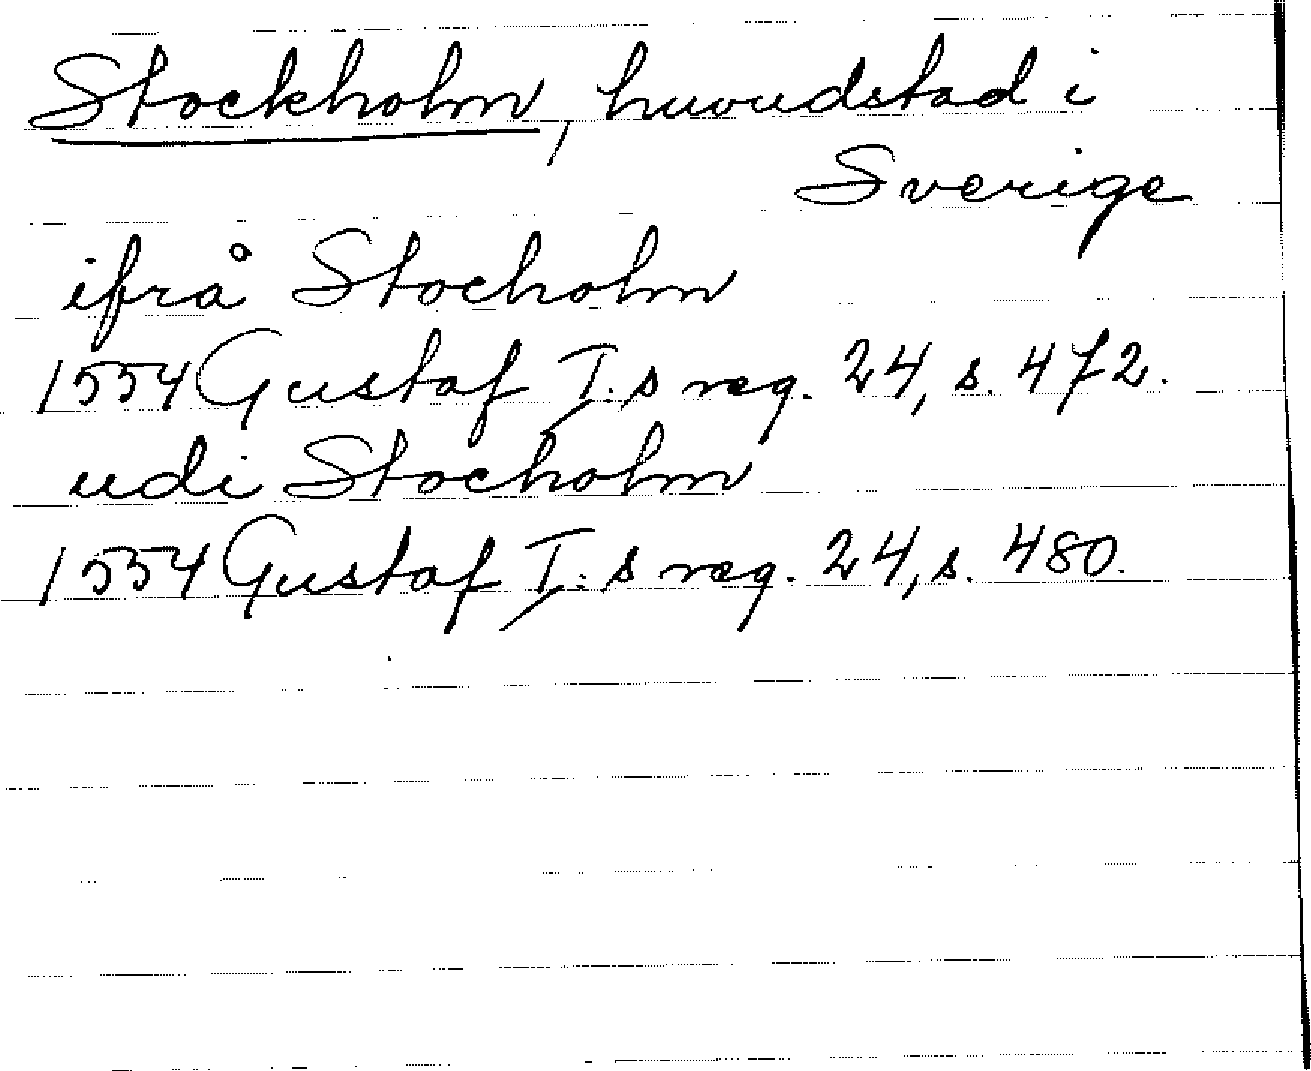 Stockholm, huvudstad i
Sverige
ifrå Stocholm
1554 Gustaf I:s reg. 24, s. 472.
udi Stocholm
1554 Gustaf I:s reg. 24, s. 480.